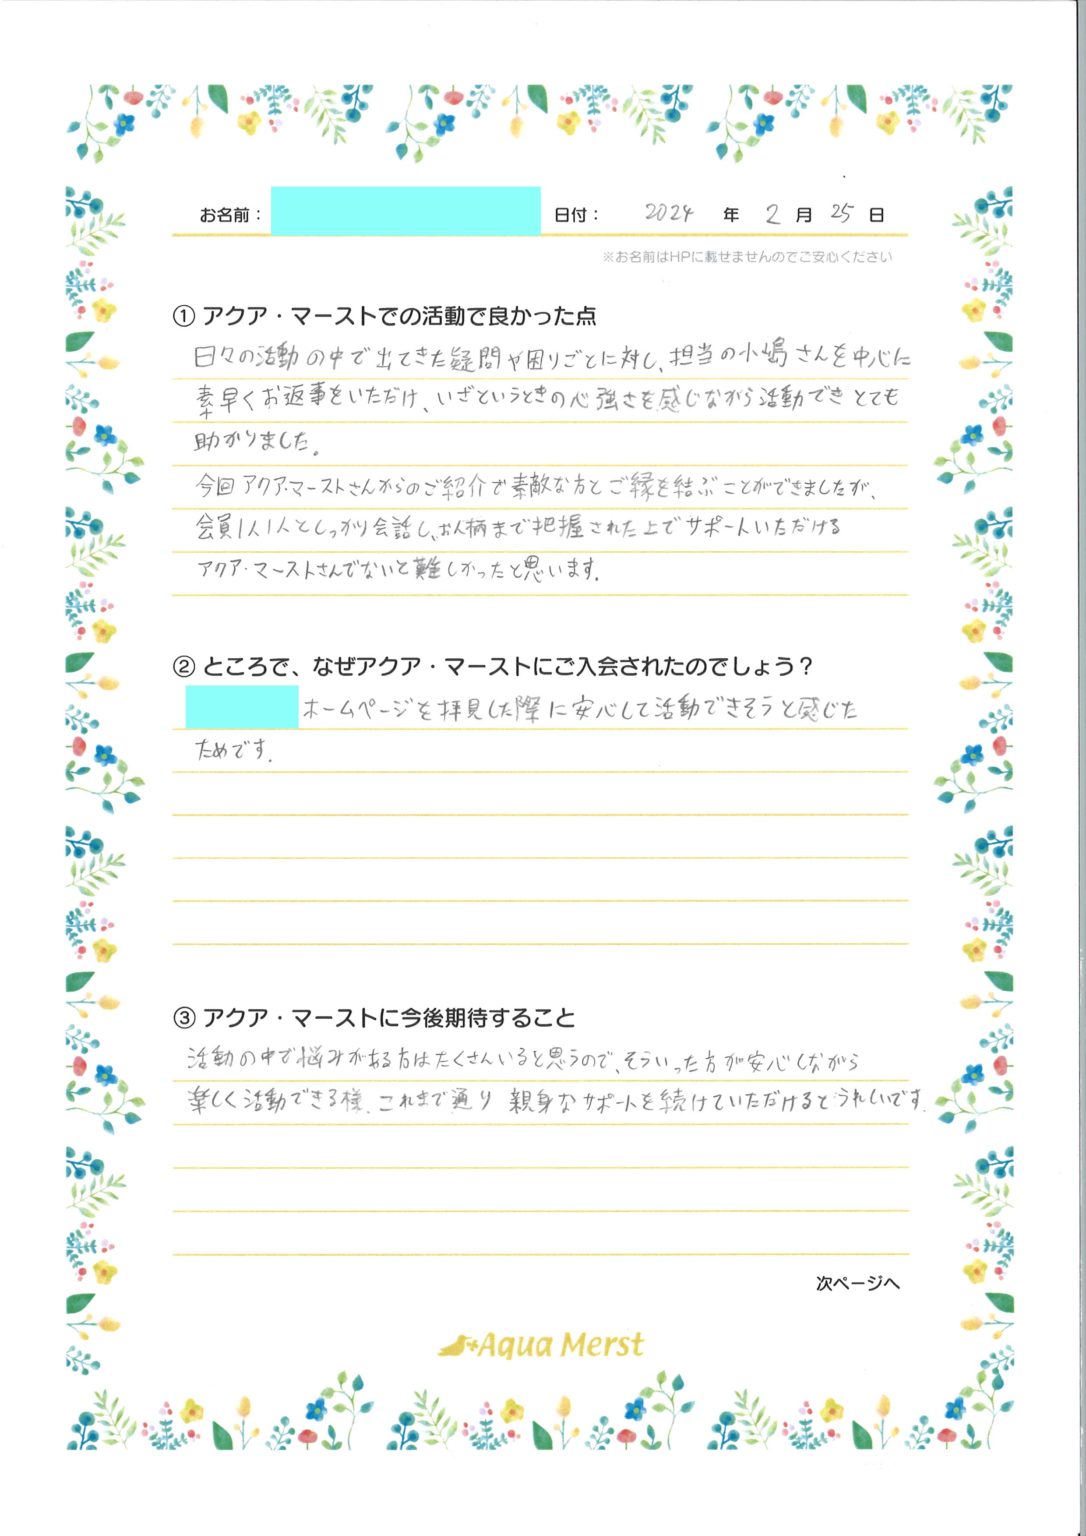 お名前：
日付： 2024 年 2 月 25 日
※お名前はHPに載せませんのでご安心ください
① アクア・マーストでの活動で良かった点
日々の活動の中で出てきた疑問や困りごとに対し、担当の小嶋さんを中心に
素早くお返事をいただけ、いざというときの心強さを感じながら活動できとても
助かりました。
今回アクア・マーストさんからのご紹介で素敵な方とご縁を結ぶことができましたが、
会員1人1人としっかり会話し、お人柄まで把握された上でサポートいただける
アクア・マーストさんでないと難しかったと思います。
② ところで、なぜアクア・マーストにご入会されたのでしょう？
ホームページを拝見した際に安心して活動できそうと感じた
ためです。
③ アクア・マーストに今後期待すること
活動の中で悩みがある方はたくさんいると思うので、そういった方が安心しながら
楽しく活動できる様、これまで通り 親身なサポートを続けていただけるとうれしいです。
次ページへ
Aqua Merst